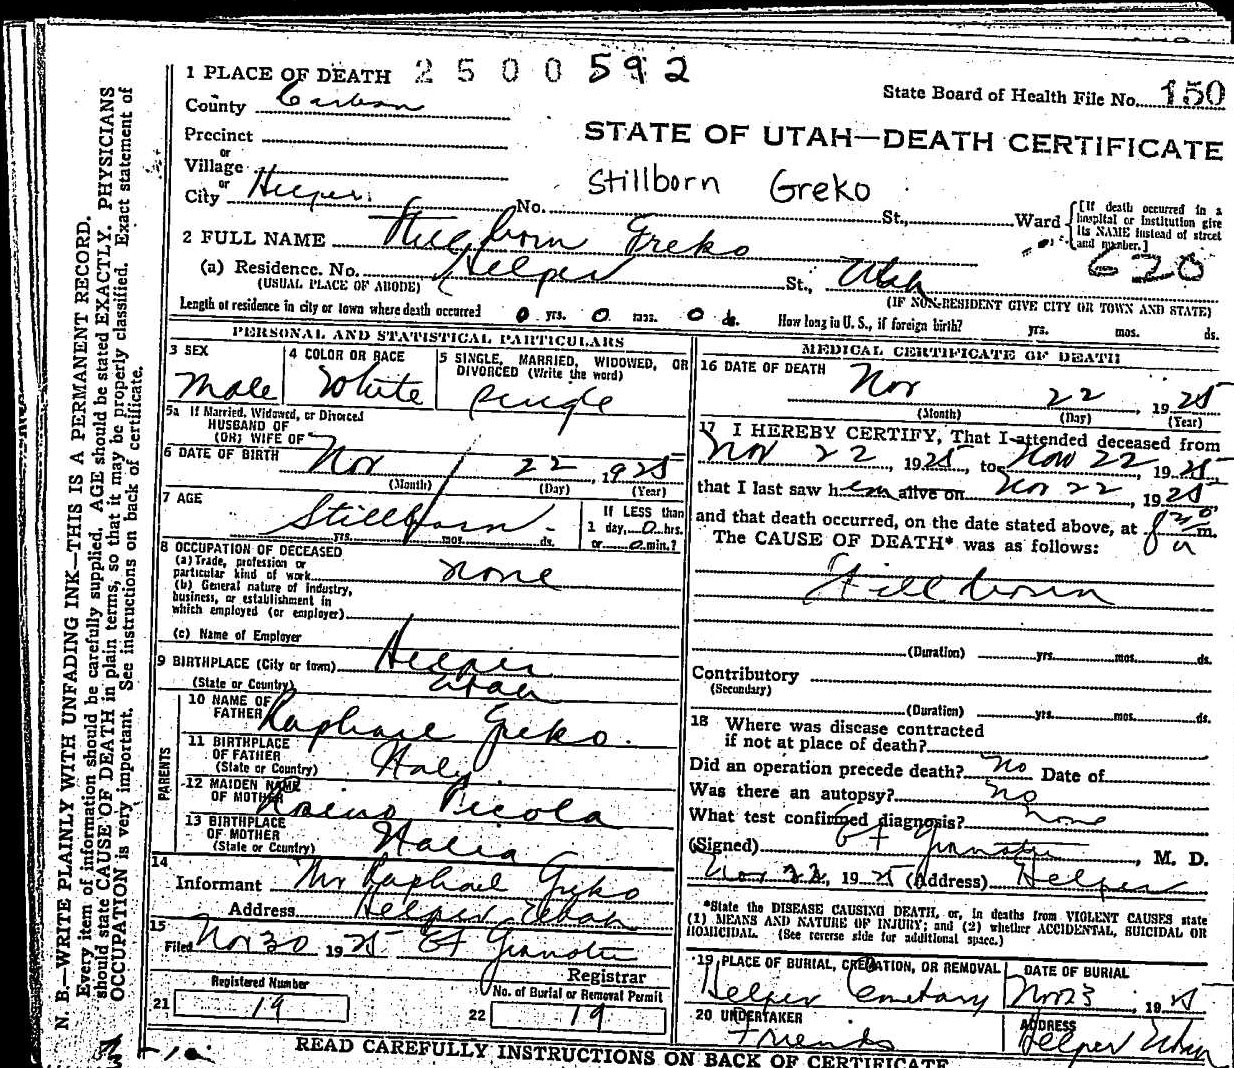 1 PLACE OF DEATH 2500592
State Board of Health File No. 150
County Carbon
Precinct
or
Village
or
City Helper.
STATE OF UTAH—DEATH CERTIFICATE
Stillborn Greko
No. St., Ward
[If death occurred in a hospital or institution give its NAME instead of street and number.]
620
2 FULL NAME Stillborn Greko
(a) Residence. No. Helper St., Utah
(USUAL PLACE OF ABODE) (IF NON-RESIDENT GIVE CITY OR TOWN AND STATE)
Length of residence in city or town where death occurred 0 yrs. 0 mos. 0 ds. How long in U. S., if foreign birth? yrs. mos. ds.
PERSONAL AND STATISTICAL PARTICULARS
3 SEX Male
4 COLOR OR RACE White
5 SINGLE, MARRIED, WIDOWED, OR DIVORCED (Write the word) Single
5a If Married, Widowed, or Divorced
HUSBAND OF
(OR) WIFE OF
6 DATE OF BIRTH Nov 22, 1925
(Month) (Day) (Year)
7 AGE Stillborn
yrs. mos. ds.
If LESS than
1 day, 0 hrs.
or 0 min.?
8 OCCUPATION OF DECEASED
(a) Trade, profession or
particular kind of work none
(b) General nature of industry,
business, or establishment in
which employed (or employer)
(c) Name of Employer
9 BIRTHPLACE (City or town) Helper
(State or Country) Utah
PARENTS
10 NAME OF FATHER Raphael Greko.
11 BIRTHPLACE OF FATHER (State or Country) Italy
12 MAIDEN NAME OF MOTHER Picola
13 BIRTHPLACE OF MOTHER (State or Country) Italia
14
Informant Mr Raphael Greko
Address Helper Utah
15
Filed Nov 30 1925
Registrar
21 Registered Number 19
22 No. of Burial or Removal Permit 19
MEDICAL CERTIFICATE OF DEATH
16 DATE OF DEATH Nov 22, 1925
(Month) (Day) (Year)
17 I HEREBY CERTIFY, That I attended deceased from
Nov 22 1925, to Nov 22 1925
that I last saw him alive on Nov 22, 1925
and that death occurred, on the date stated above, at m.
The CAUSE OF DEATH* was as follows:
Stillborn
(Duration) yrs. mos. ds.
Contributory
(Secondary)
(Duration) yrs. mos. ds.
18 Where was disease contracted
if not at place of death?
Did an operation precede death? No Date of
Was there an autopsy? no
What test confirmed diagnosis? none
(Signed) , M. D.
Nov 22, 1925 (Address) Helper
*State the DISEASE CAUSING DEATH, or, in deaths from VIOLENT CAUSES state
(1) MEANS AND NATURE OF INJURY; and (2) whether ACCIDENTAL, SUICIDAL OR
HOMICIDAL. (See reverse side for additional space.)
19 PLACE OF BURIAL, CREMATION, OR REMOVAL Helper Cemetary
DATE OF BURIAL Nov 23, 1925
20 UNDERTAKER Friends
ADDRESS Helper Utah
READ CAREFULLY INSTRUCTIONS ON BACK OF CERTIFICATE
N. B.—WRITE PLAINLY WITH UNFADING INK—THIS IS A PERMANENT RECORD.
Every item of information should be carefully supplied. AGE should be stated EXACTLY. PHYSICIANS
should state CAUSE OF DEATH in plain terms, so that it may be properly classified. Exact statement of
OCCUPATION is very important. See instructions on back of certificate.